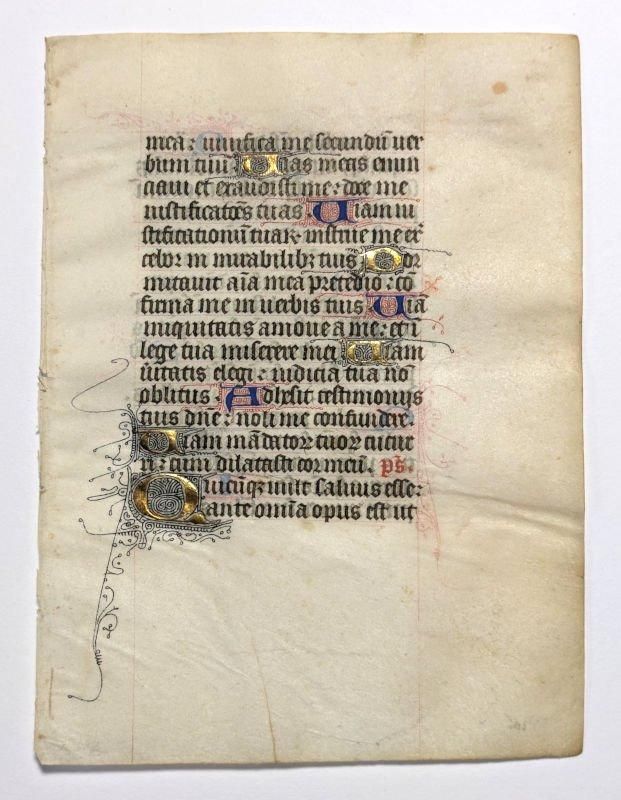 meā: uiuifica me secundū uer
bum tuū Uias meas enun
ciaui et exaudisti me: doce me
iustificatōes tuas Uiam iu
stificationū tuaꝝ instrue me: et ex
cebor in mirabilibꝫ tuis Dor
mitauit aīa mea pre tedio: cō
firma me in uerbis tuis Uiā
iniquitatis amoue a me: et ī
lege tua miserere mei Uiam
ūitatis elegi: iudicia tua nō
oblitus Adhesit testimonijs
tuis dñe: noli me confundere.
Uiam mādatoꝝ tuoꝝ cucur
ri: cum dilatasti cor meū. ps̄.
Quicūqꝫ uult saluus esse:
ante omīa opus est ut